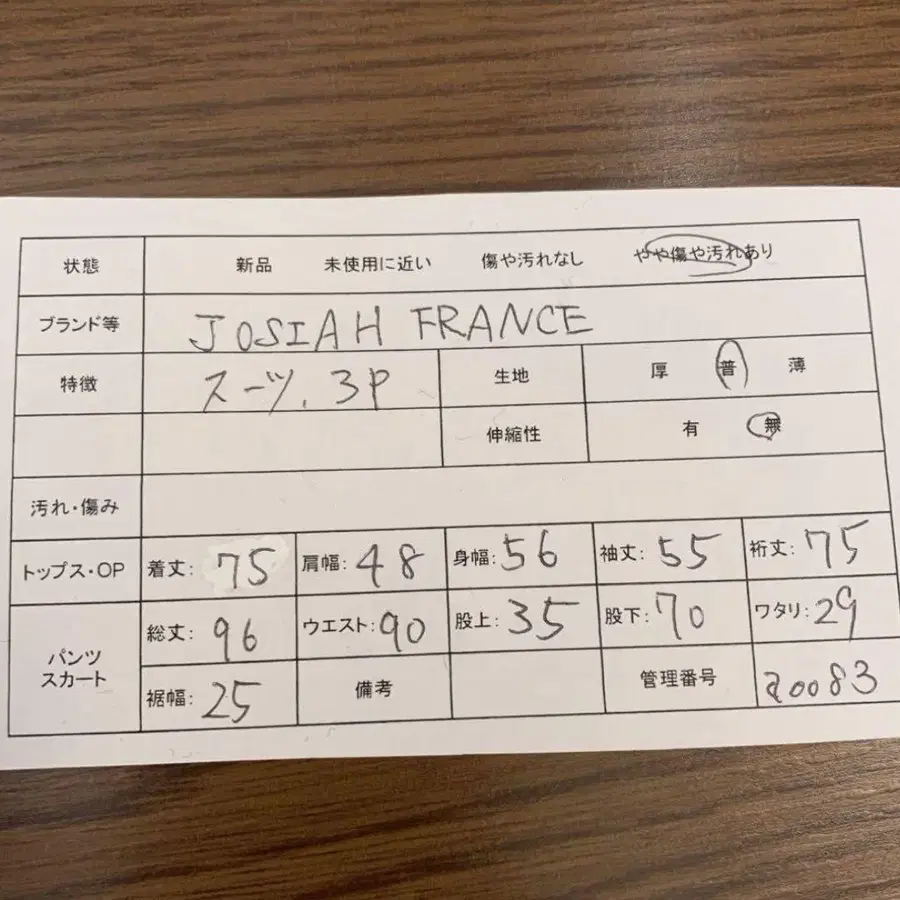 状態 新品 未使用に近い 傷や汚れなし やや傷や汚れあり
ブランド等 JOSIAH FRANCE
特徴 スーツ. 3P 生地 厚 普 薄
伸縮性 有 無
汚れ・傷み
トップス・OP 着丈: 75 肩幅: 48 身幅: 56 袖丈: 55 裄丈: 75
パンツ スカート 総丈: 96 ウエスト: 90 股上: 35 股下: 70 ワタリ: 29
裾幅: 25 備考 管理番号 a0083